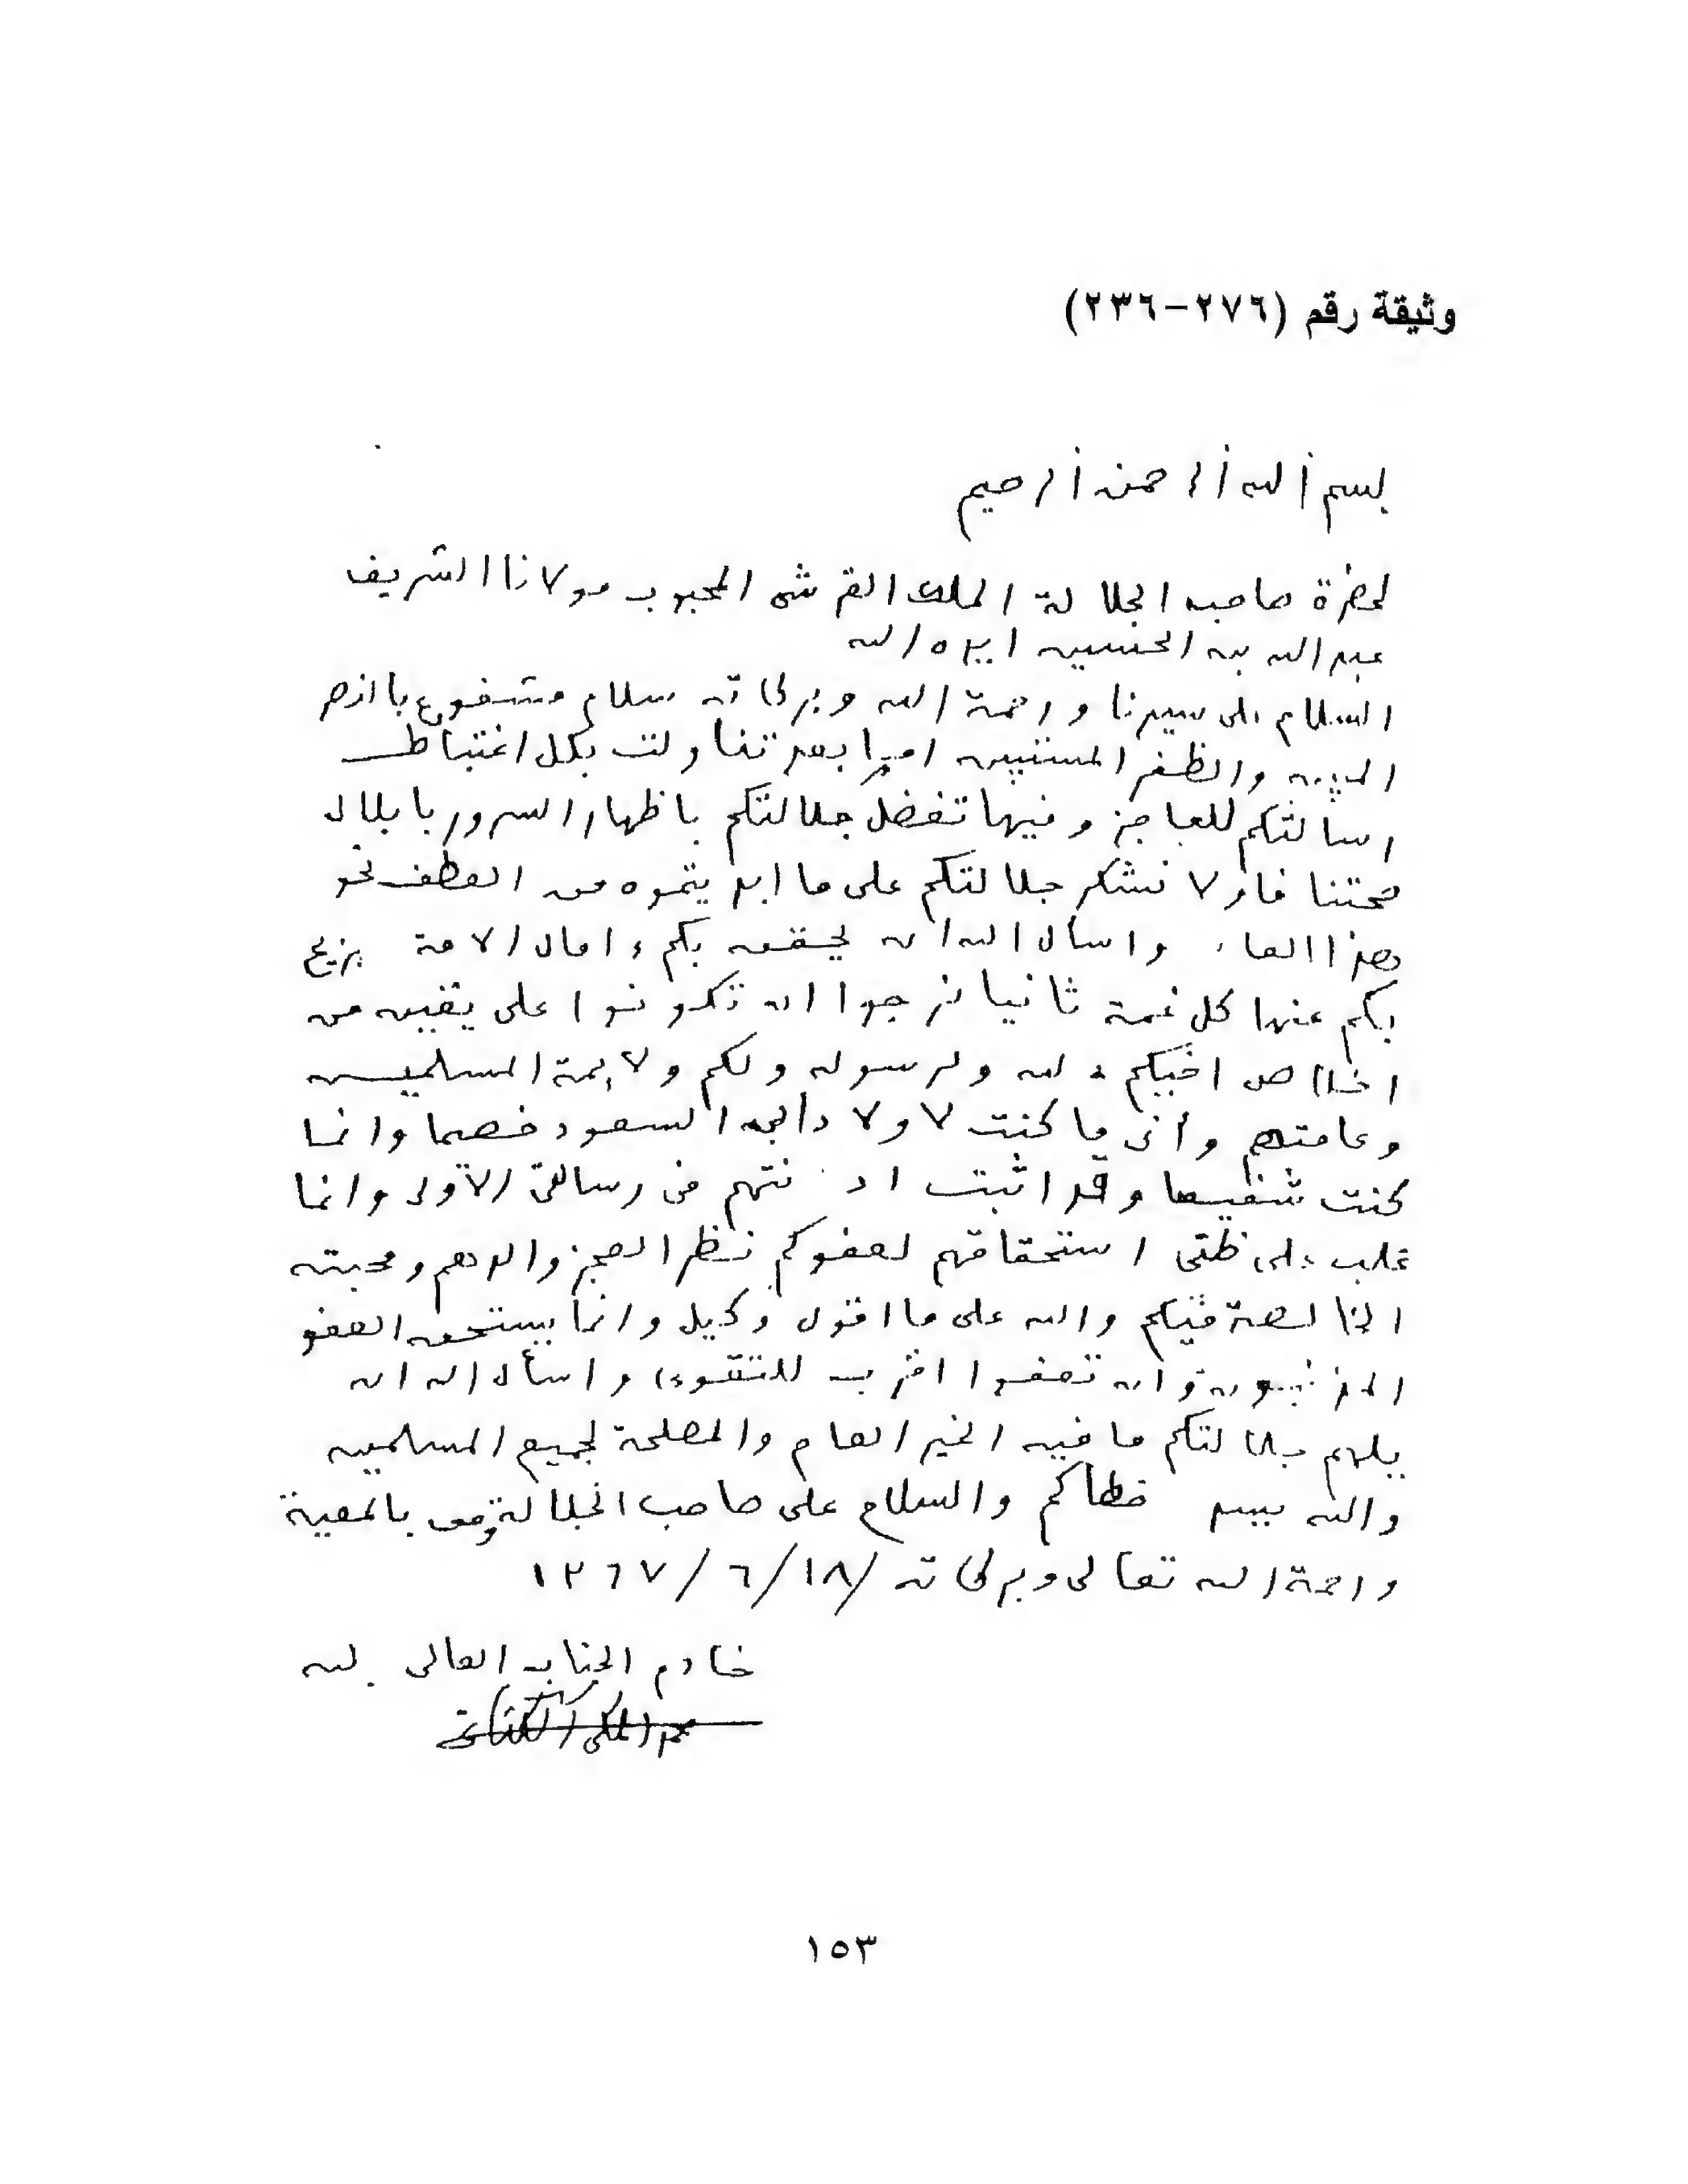 وثيقة رقم (٢٧٦-٢٣٦)
بسم الله الرحمن الرحيم
لحضرة صاحب الجلالة الملك القرشي المحبوب مولانا الشريف
عبدالله بن الحسين ايده الله
السلام على سيدنا ورحمة الله وبركاته سلام مشفوع بالنصر
المبين والظفر المستبين اما بعد تناولت بكل اغتباط
رسالتكم للعاجز وفيها تفضل جلالتكم باظهار السرور بابلال
صحتنا فاولا نشكر جلالتكم على ما ابديتموه من العطف نحو
هذا واسأل الله ان يحقق بكم امال الامة يزيح
بكم عنها كل غمة ثانيا نرجوا ان تكونوا على يقين من
اخلاص اخيكم لله ولرسوله ولكم ولايمة المسلمين
وعامتهم وأني ما كنت لاولاد السعود خصما وانما
كنت شفيعا وقد اثبت في رسالتي الأولى وانما
غلب على ظني استحقاقهم لعفوكم نظر العجز ومحبته
الخالصة فيكم والله على ما اقول وكيل وانما يستحق العفو
المذنبون وان تعفوا اقرب للتقوى واسأل الله ان
يلهم جلالتكم ما فيه الخير العام والمصلحة لجميع المسلمين
والله يسدد خطاكم والسلام على صاحب الجلالة ومن بالمعية
ورحمة الله تعالى وبركاته ١٨/٦/١٣٦٧
خادم الجناب العالي
محمد المكي الكتاني
١٥٣